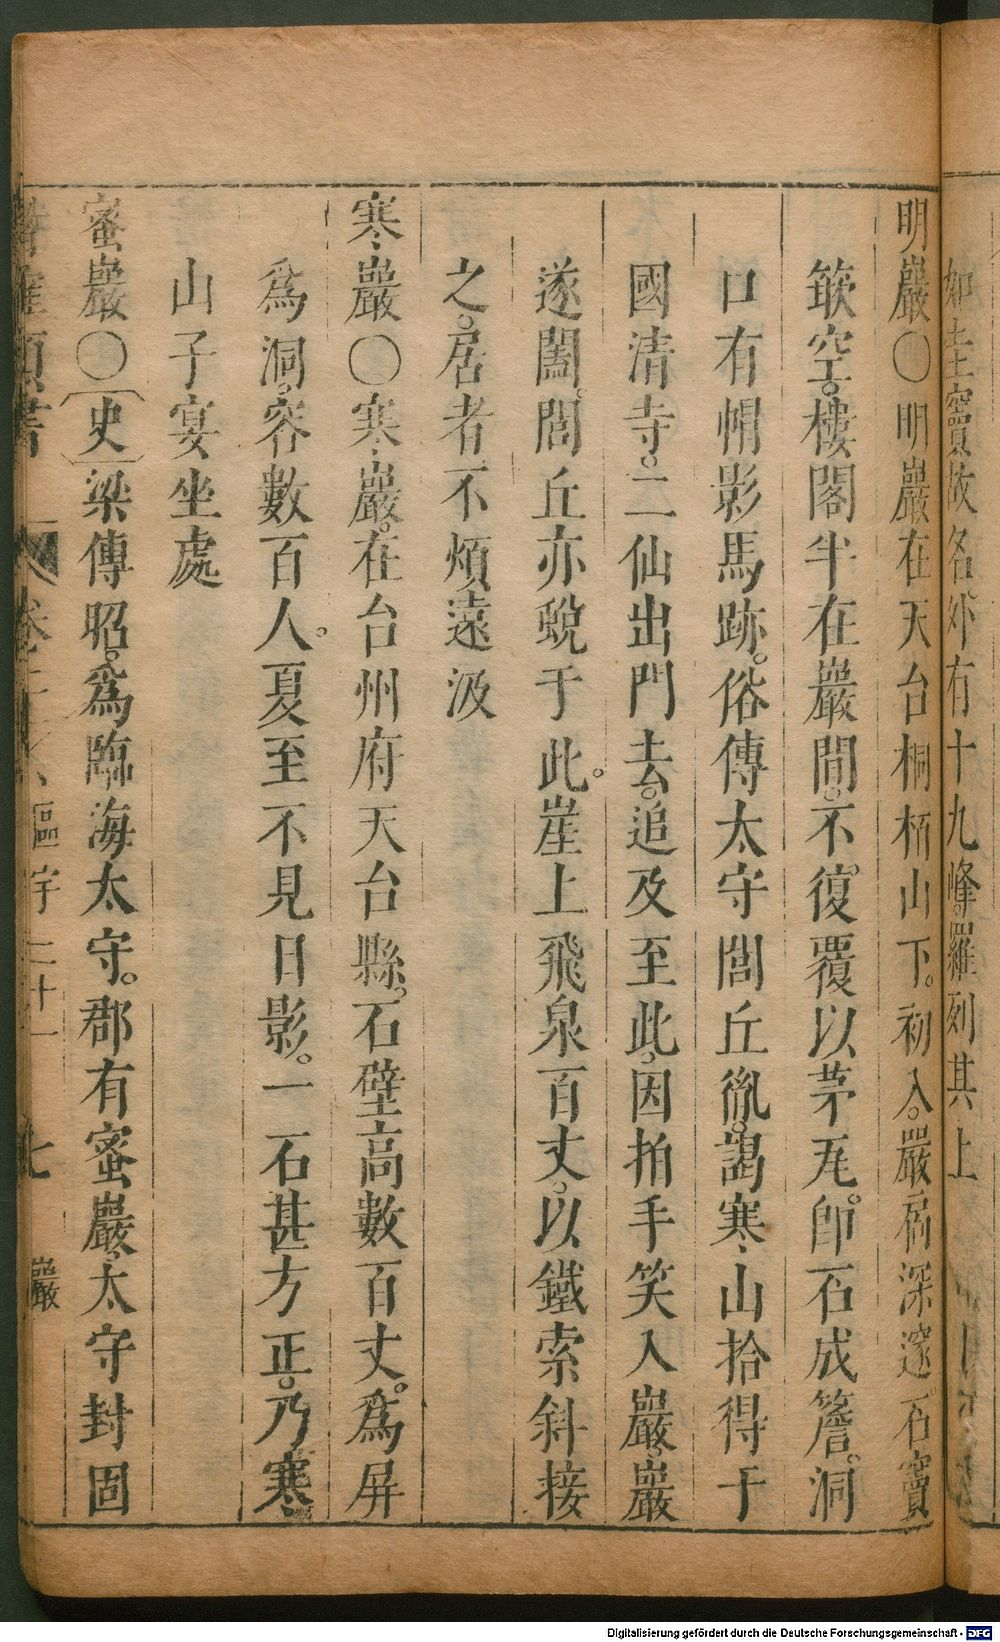 如圭竇故名外有十九峰羅列其上
明巖〇明巖在天台桐栢山下。初入。巖扃深邃。石竇
簌空。樓閣半在巖間。不復覆以茅瓦。卽石成簷。洞
口有㡌影馬跡。俗傳太守閭丘胤。謁寒山拾得于
國清寺。二仙出門去。追及至此。因拍手笑入巖。巖
遂闔。閭丘亦蛻于此。崖上飛泉百丈。以鐵索斜接
之。居者不煩遠汲
寒巖〇寒巖。在台州府天台縣。石壁高數百丈。爲屏
爲洞。容數百人。夏至不見日影。一石甚方正。乃寒
山子宴坐處
蜜巖〇史梁傅昭。爲臨海太守。郡有蜜巖。太守封固
類書 卷 區宇二十一 七 巖
Digitalisierung gefördert durch die Deutsche Forschungsgemeinschaft - DFG